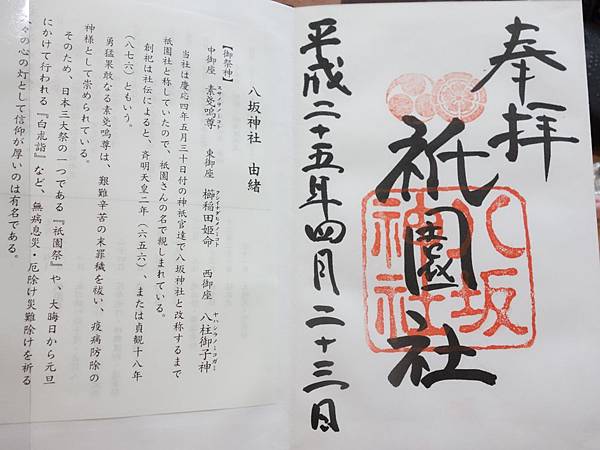 奉拝
八坂神社
祇園社
平成二十五年四月二十三日
八坂神社 由緒
【御祭神】
中御座 素戔嗚尊 東御座 櫛稲田姫命 西御座 八柱御子神
スサノヲノミコト クシイナダヒメノミコト ヤハシラノミコガミ
当社は慶応四年五月三十日付の神祇官達で八坂神社と改称するまで
祇園社と称していたので、祇園さんの名で親しまれている。
創祀は社伝によると、斉明天皇二年(六五六)、または貞観十八年
(八七六)ともいう。
勇猛果敢なる素戔嗚尊は、艱難辛苦の末罪穢を祓い、疫病防除の
神様として崇められている。
そのため、日本三大祭の一つである『祇園祭』や、大晦日から元旦
にかけて行われる『白朮詣』など、無病息災・厄除け災難除けを祈る
人々の心の灯として信仰が厚いのは有名である。